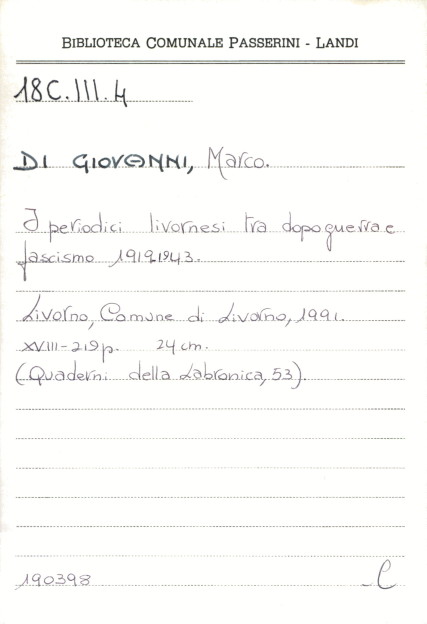 BIBLIOTECA COMUNALE PASSERINI - LANDI
18C.III.4
DI GIOVANNI, Marco.
I periodici livornesi tra dopoguerra e
fascismo 1919-1943.
Livorno, Comune di Livorno, 1991.
XVIII-219p. 24 cm.
(Quaderni della Labronica, 53).
190398